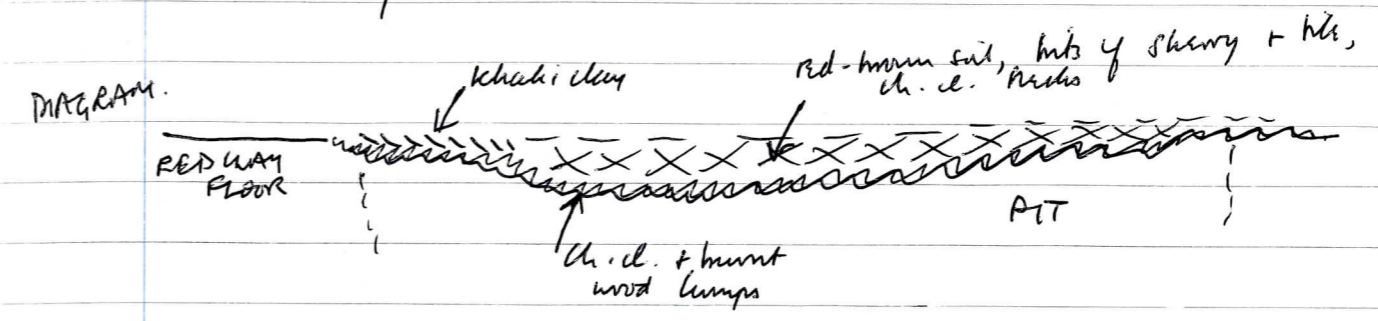 DIAGRAM.
khaki clay
red-brown soil, bits of skerry + tile,
ch. cl. flecks
RED CLAY
FLOOR
PIT
Ch. cl. + burnt
wood lumps